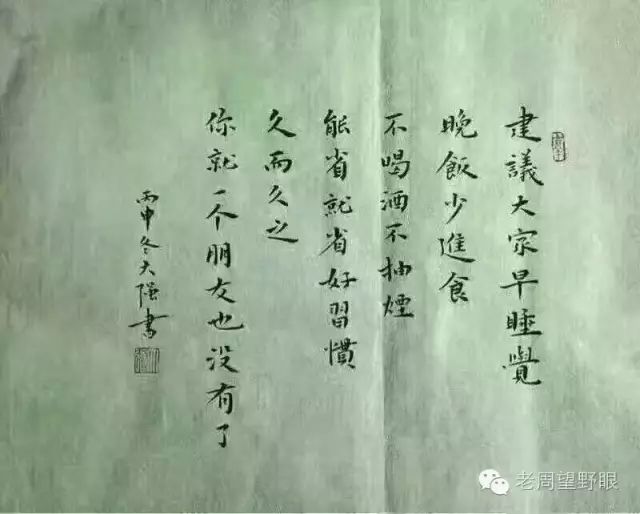 建議大家早睡覺
晚飯少進食
不喝酒不抽煙
能省就省好習慣
久而久之
你就一个朋友也没有了
丙申冬大强書
老周望野眼